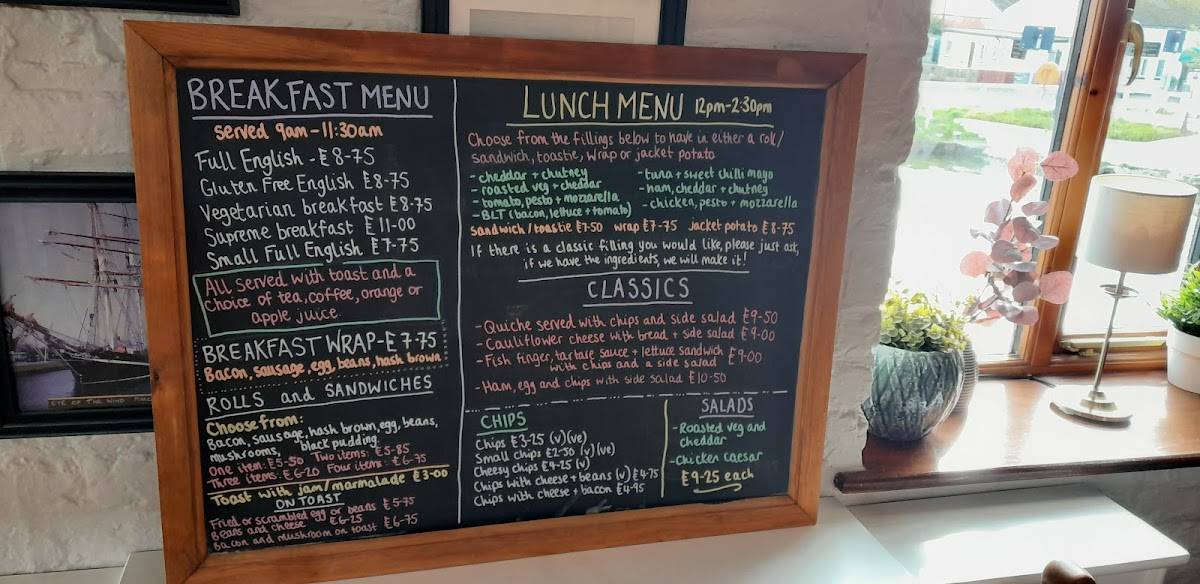 BREAKFAST MENU
served 9am-11:30am
Full English - £8-75
Gluten Free English £8-75
Vegetarian breakfast £8-75
Supreme breakfast £11-00
Small Full English £7-75
All served with toast and a
choice of tea, coffee, orange or
apple juice
BREAKFAST WRAP-£7-75
Bacon, sausage, egg, beans, hash brown
ROLLS and SANDWICHES
Choose from:
Bacon, sausage, hash brown, egg, beans,
mushrooms, black pudding
One item: £5-50 Two items: £5-85
Three items: £6-20 Four items: £6-75
Toast with jam/marmalade £3-00
ON TOAST
Fried or scrambled egg or beans £5-75
Beans and cheese £6-25
Bacon and mushroom on toast £6-75
LUNCH MENU 12pm-2:30pm
Choose from the fillings below to have in either a roll/
sandwich, toastie, wrap or jacket potato
- cheddar + chutney
- roasted veg + cheddar
- tomato, pesto + mozzarella
- BLT (bacon, lettuce + tomato)
- tuna + sweet chilli mayo
- ham, cheddar + chutney
- chicken, pesto + mozzarella
Sandwich/toastie £7-50 wrap £7-75 Jacket potato £8-75
If there is a classic filling you would like, please just ask,
if we have the ingredients, we will make it!
CLASSICS
- Quiche served with chips and side salad £9-50
- Cauliflower cheese with bread + side salad £9-00
- Fish finger, tartare sauce + lettuce sandwich £9-00
with chips and a side salad
- Ham, egg and chips with side salad £10-50
CHIPS
Chips £3-25 (v)(ve)
Small chips £2-50 (v)(ve)
Cheesy chips £4-25 (v)
Chips with cheese + beans (v) £4-75
Chips with cheese + bacon £4-95
SALADS
- Roasted veg and
cheddar
- Chicken caesar
£9-25 each